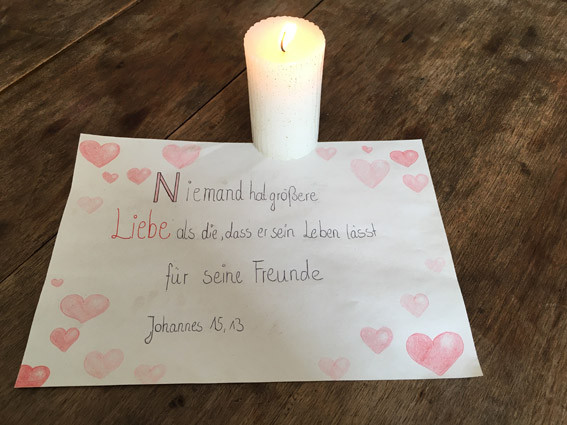 Niemand hat größere
Liebe als die, dass er sein Leben lässt
für seine Freunde
Johannes 15,13